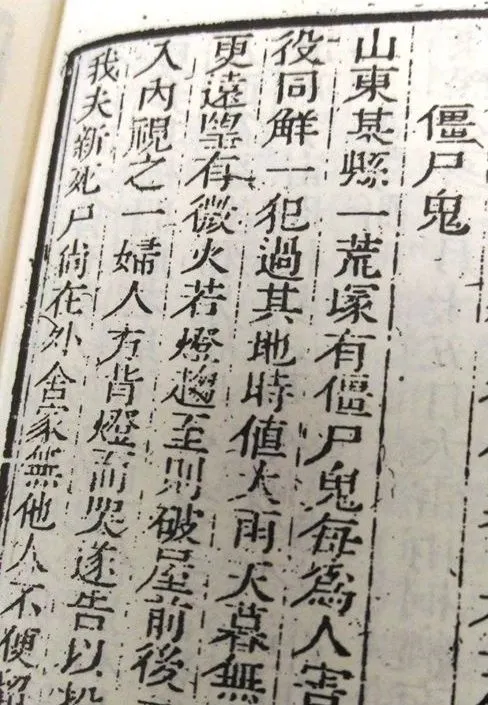 僵尸鬼
山東某縣一荒塚有僵尸鬼每為人害
役同解一犯過其地時值大雨天暮無
更遠望有微火若燈趨至則破屋前後
入內視之一婦人方背燈而哭遂告以投
我夫新死尸尚在外舍家無他人不便